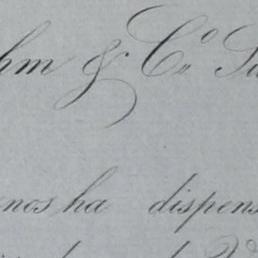 hm & Cº Su
enos ha dispens